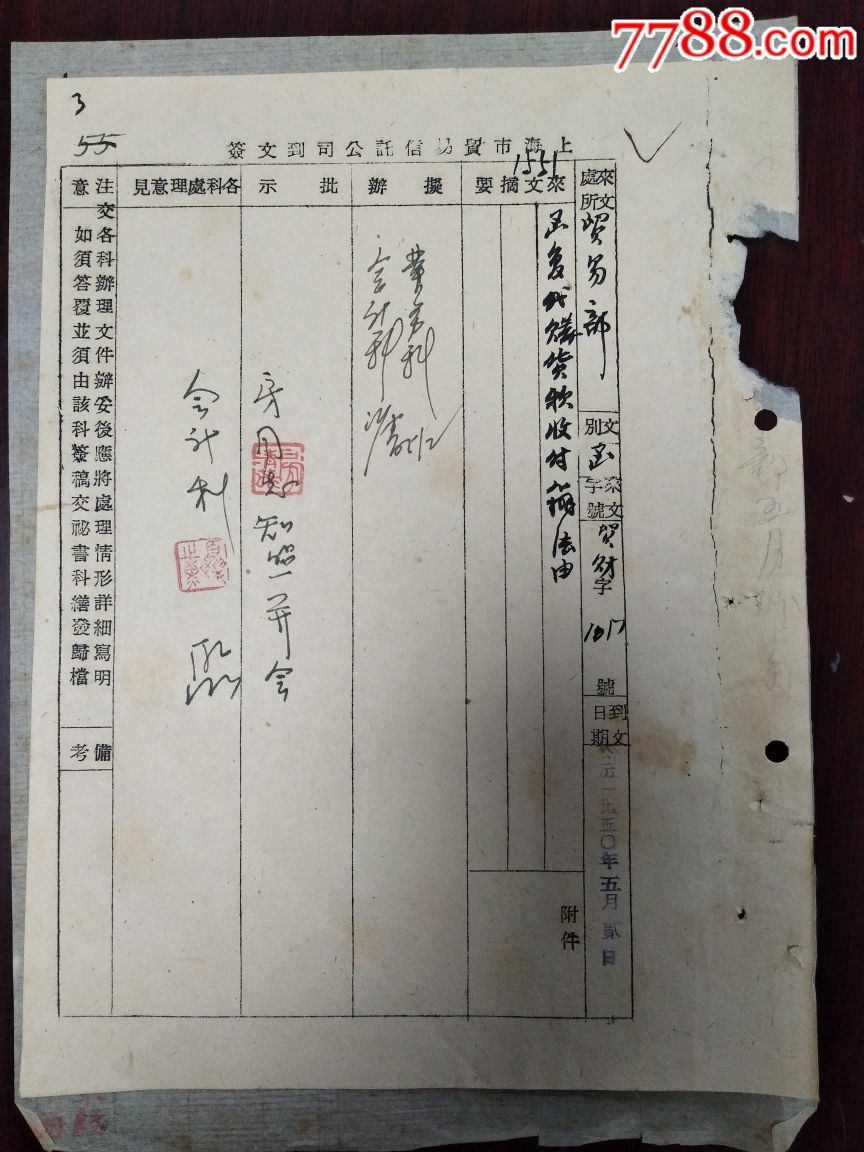 7788.com
3
55
上海市貿易信託公司到文簽
1551
來文處所
貿易部
文別
函
來文字號
貿財字
1017
號
到文日期
一九五〇年五月貳日
來文摘要
函复代購貨款收付辦法由
附件
擬辦
業务科
会计科
批示
知照一并会
各科處理意見
会计科
注意
交各科辦理文件辦妥後應將處理情形詳細寫明
如須答覆並須由該科簽稿交祕書科繕發歸檔
備考